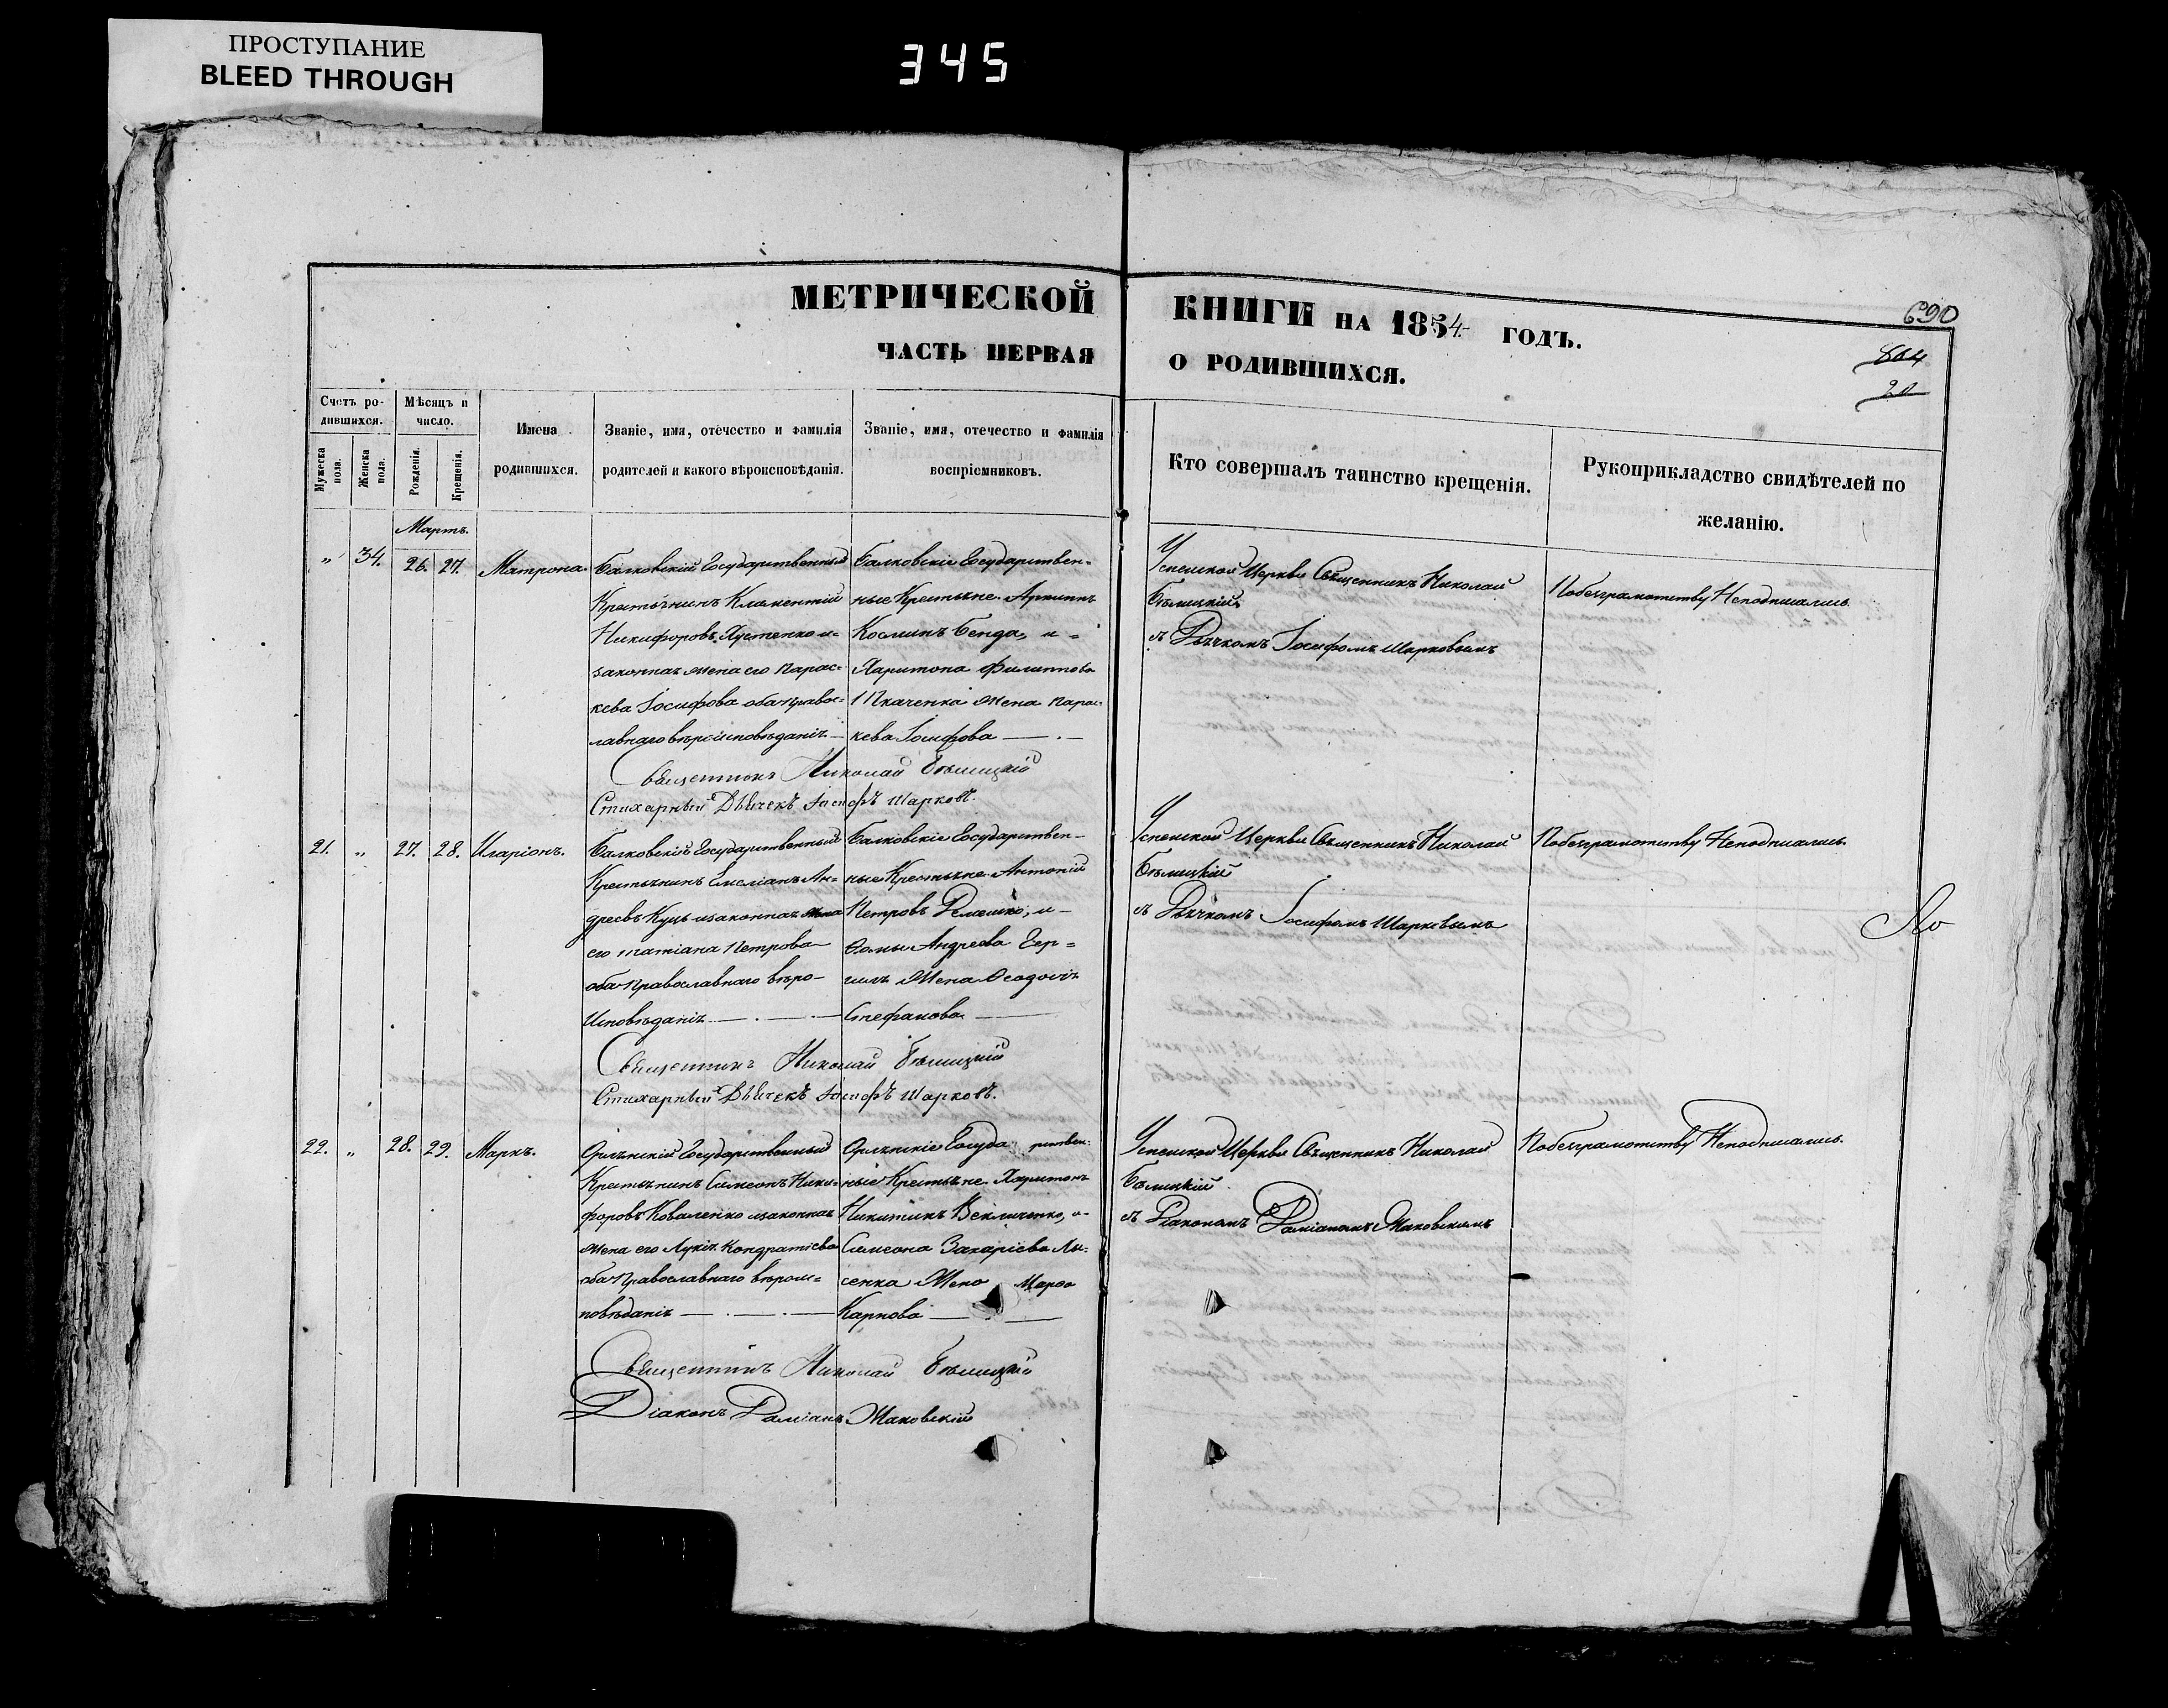 ПРОСТУПАНИЕ
BLEED THROUGH
345
МЕТРИЧЕСКОЙ КНИГИ НА 1854 ГОДЪ.
ЧАСТЬ ПЕРВАЯ О РОДИВШИХСЯ.
690
20
Счетъ родившихся.
Мужеска пола.
Женска пола.
Мѣсяцъ и число.
Рожденія.
Крещенія.
Имена
родившихся.
Званіе, имя, отечество и фамилія
родителей и какого вѣроисповѣданія.
Званіе, имя, отечество и фамилія
воспріемниковъ.
Кто совершалъ таинство крещенія.
Рукоприкладство свидѣтелей по
желанію.
Мартъ.
„ 34. 26. 27. Матрона.
Балковскій Государственный
Крестьянинъ Климентій
Никифоровъ Хустенко и
законная жена его Парас-
кева Іосифова оба Правос-
лавнаго вѣроисповѣданія
Балковскіе Государствен-
ные Крестьяне
Косминъ Бенда, и
Харитона Филиппова
Ткаченка жена Парас-
кева Іосифова
Успеской Церкви Священникъ Николай
Бѣлицкій
съ Дьячкомъ Іосифомъ Шарковымъ
Побезграмотству Неподписались
Священникъ Николай Бѣлицкій
Стихарный Дьячекъ Іосифъ Шарковъ.
21. „ 27. 28. Иларіонъ.
Балковскій Государственный
Крестьянинъ Емеліанъ Ан-
дреевъ Куць и законная жена
его Татіана Петрова
оба Православнаго вѣро-
исповѣданія
Балковскіе Государствен-
ные Крестьяне Антоній
Петровъ и
Ѳомы Андреева
жена Ѳеодосія
Стефанова
Успеской Церкви Священникъ Николай
Бѣлицкій
съ Дьячкомъ Іосифомъ Шарковымъ
Побезграмотству Неподписались
Священникъ Николай Бѣлицкій
Стихарный Дьячекъ Іосифъ Шарковъ.
22. „ 28. 29. Маркъ.
Орлянскій Государственный
Крестьянинъ Симеонъ Ники-
форовъ Коваленко и законная
жена его Лукія Кондратіева
оба Православнаго вѣроис-
повѣданія
Орлянскіе Государствен-
ные Крестьяне Харитонъ
Никитинъ Векличенко, и
Симеона Захаріева Лы-
сенка Жена Марѳа
Карпова
Успеской Церкви Священникъ Николай
Бѣлицкій
съ Діакономъ Даміаномъ Маковскимъ
Побезграмотству Неподписались
Священникъ Николай Бѣлицкій
Діаконъ Даміанъ Маковскій